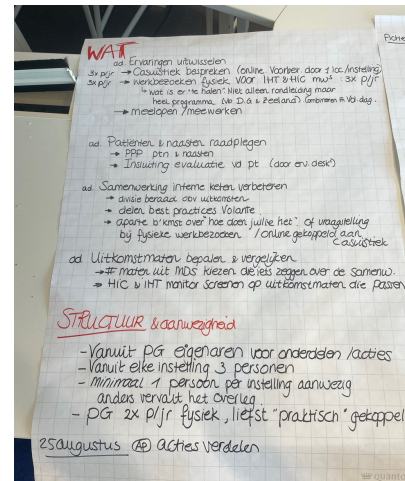 WAT
Fiche
ad. Ervaringen uitwisselen
3x p/jr → Casuïstiek bespreken (online Voorber. door 1 loc/instelling)
3x p/jr → werkbezoeken fysiek voor IHT & HIC mws : 3x p/j
↳ wat is er te halen? Niet alleen rondleiding maar
heel programma (No D.G & Zeeland) Combineren th. Vd. dag.
→ meelopen/meewerken
ad. Patiënten & naasten raadplegen
→ PPP ptn & naasten
→ Insluiting evaluatie vd pt (door erv. desk.)
ad. Samenwerking interne keten verbeteren
→ divisie beraad obv uitkomsten
→ delen best practices Volante
→ aparte b'komst over "hoe doen jullie het" of vraagstelling
bij fysieke werkbezoeken / online gekoppeld aan
casuïstiek
ad Uitkomstmaten bepalen & vergelijken
→ # maten uit MDS kiezen die iets zeggen over de samenw.
→ HIC & IHT monitor screenen op uitkomstmaten die passen
STRUCTUUR & aanwezigheid
- Vanuit PG eigenaren voor onderdelen /acties
- Vanuit elke instelling 3 personen
- minimaal 1 persoon per instelling aanwezig
anders vervalt het overleg.
- PG 2x p/jr fysiek, liefst "praktisch" gekoppel
25 augustus AP acties verdelen
quanto